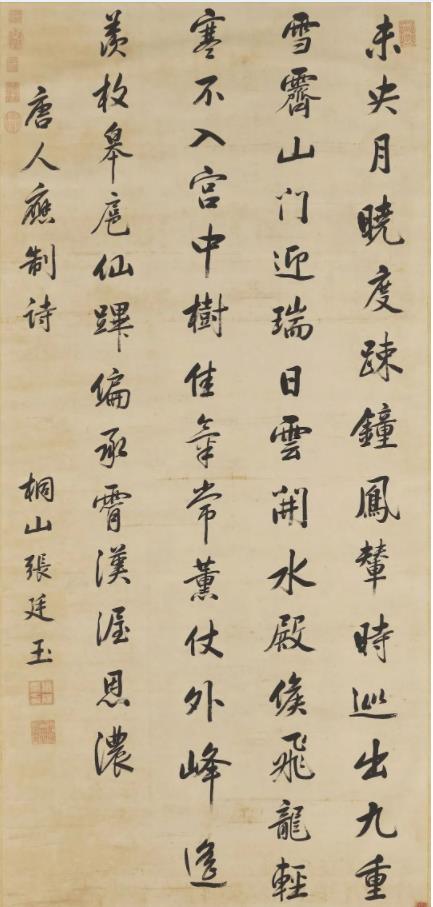 未央月曉度踈鐘鳳輦時巡出九重
雪霽山門迎瑞日雲開水殿候飛龍輕
寒不入宮中樹佳氣常薰仗外峰遙
羨枚皋扈仙蹕偏承霄漢渥恩濃
唐人應制詩 桐山張廷玉